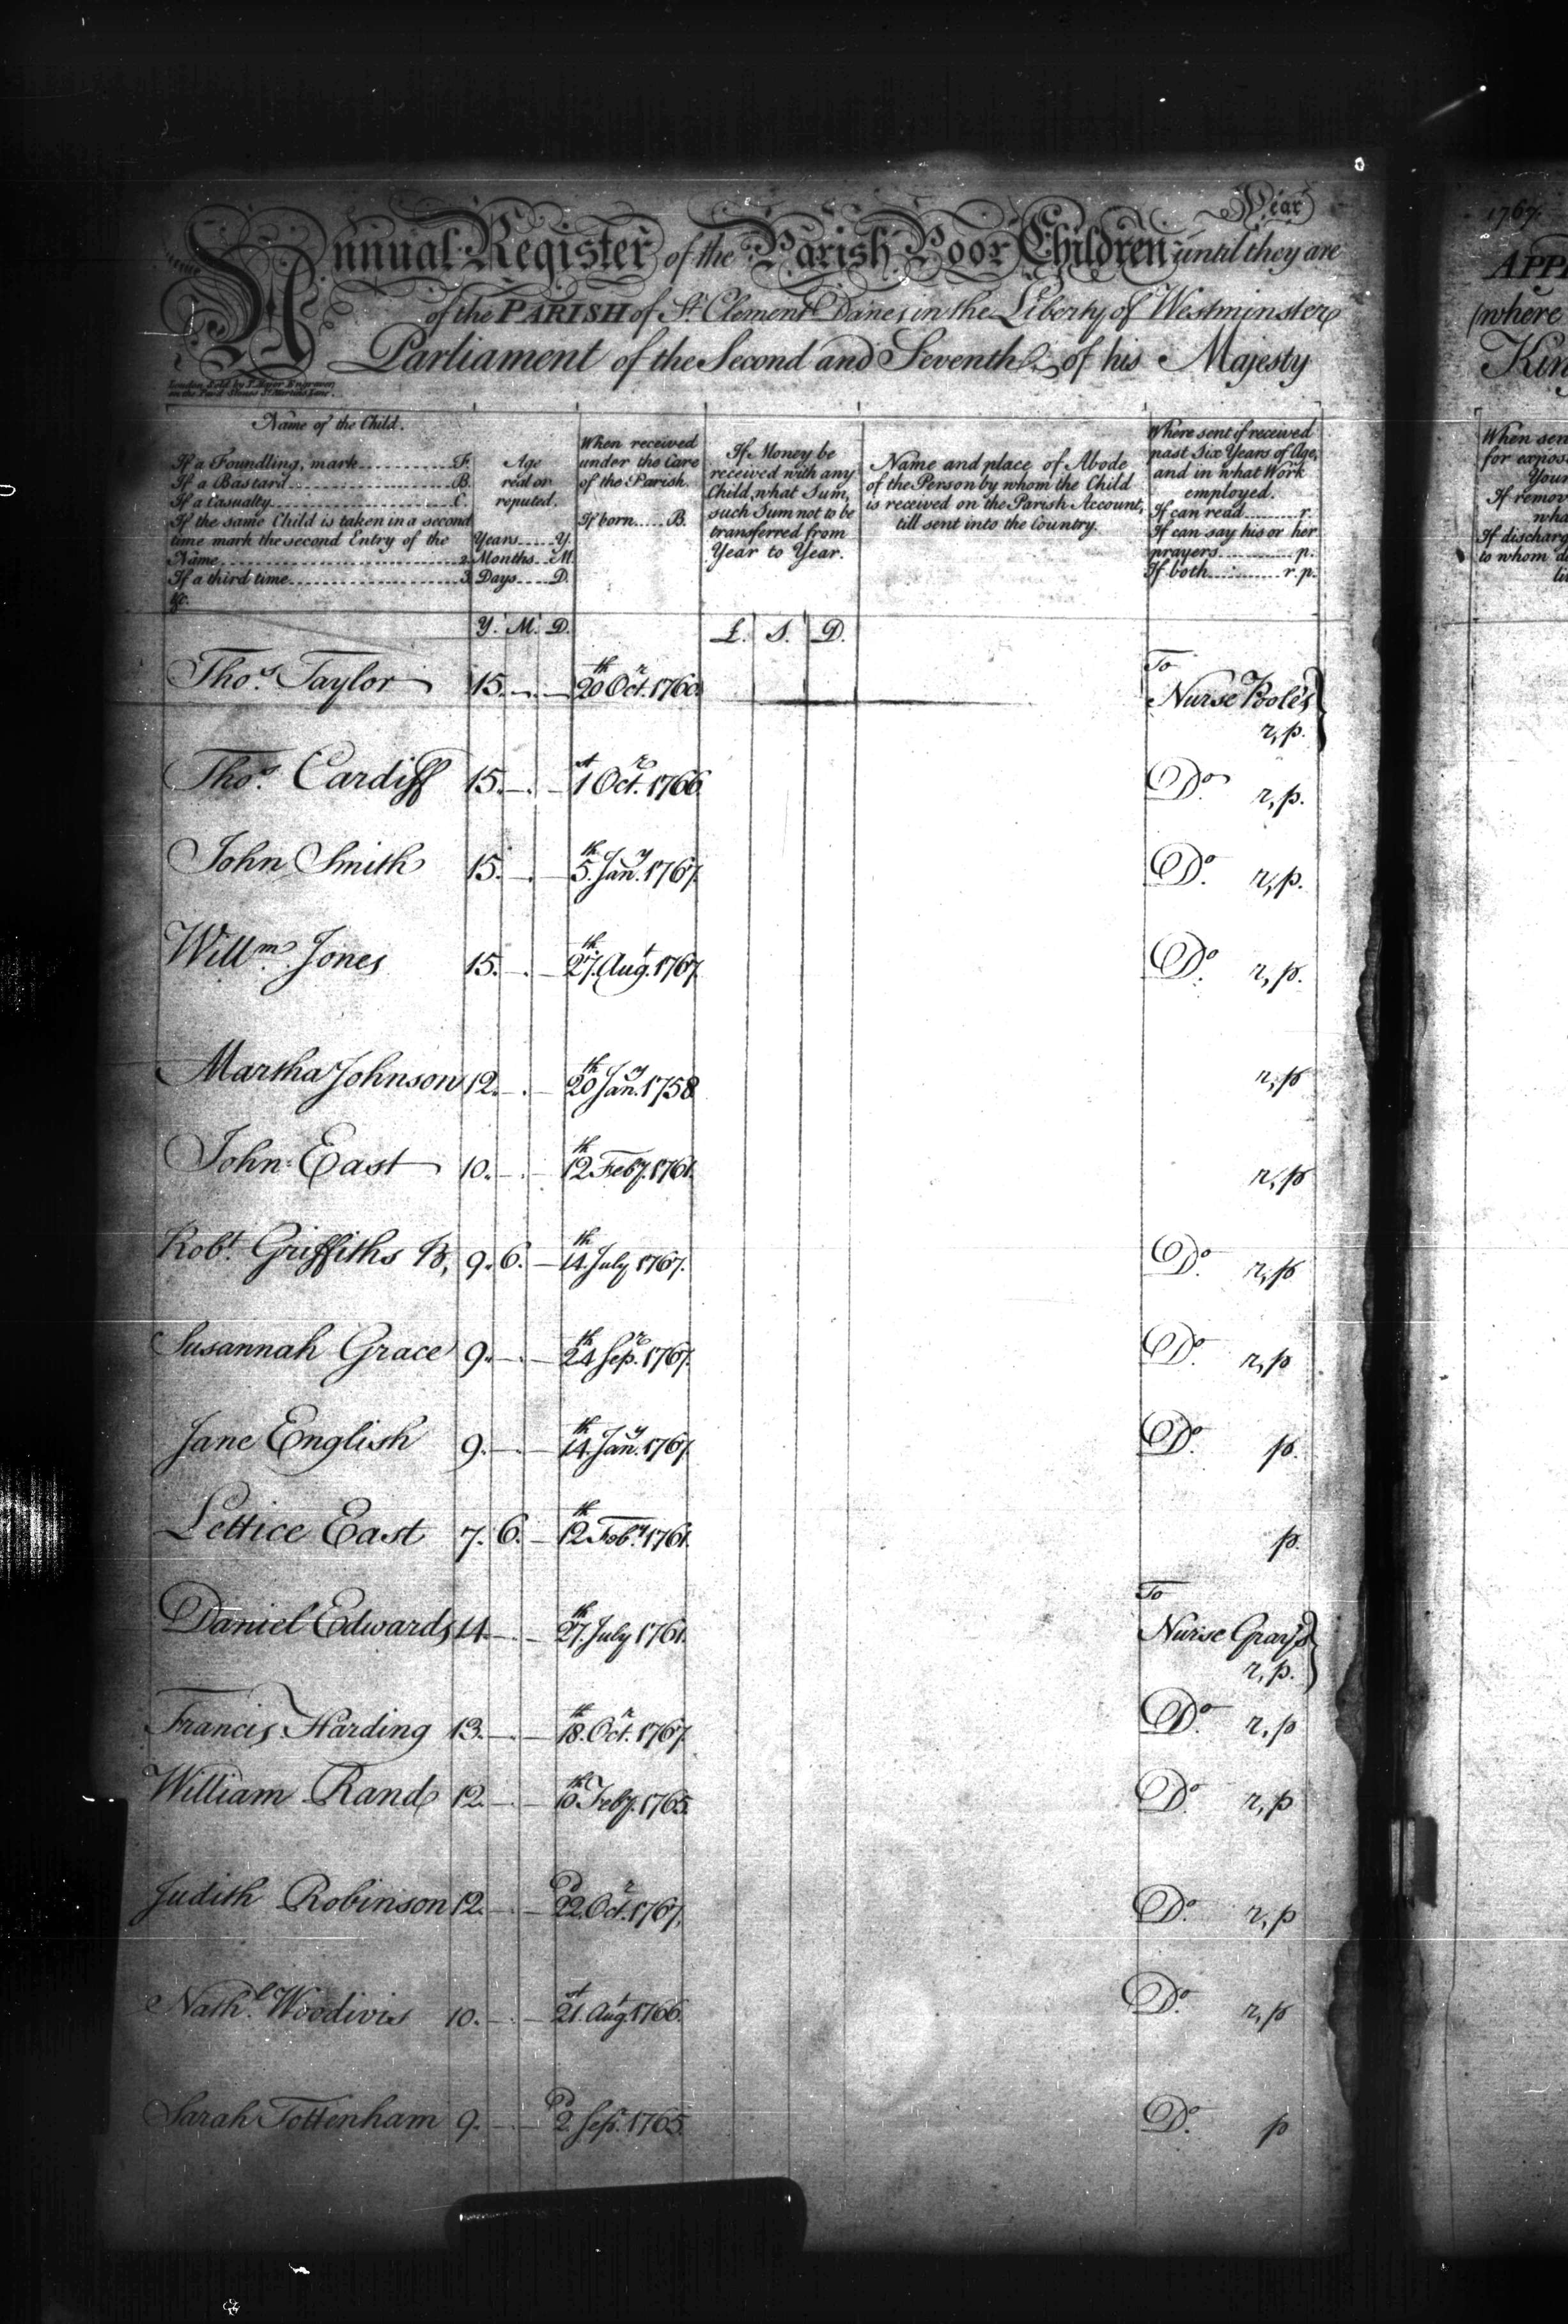 Year
Annual Register of the Parish Poor Children until they are
of the PARISH of St. Clement Danes in the Liberty of Westminster
Parliament of the Second and Seventh of his Majesty
London Sold by
on the Pavd Stones St. Martins Lane
Name of the Child.
If a Foundling, mark F.
If a Bastard B.
If a Casualty C.
If the same Child is taken in a second
time mark the second Entry of the
Name 2.
If a third time 3.
&c.
Age
real or
reputed.
Years Y.
Months M.
Days D.
When received
under the Care
of the Parish.
If born B.
If Money be
received with any
Child, what Sum,
such Sum not to be
transferred from
Year to Year.
Name and place of Abode
of the Person by whom the Child
is received on the Parish Account,
till sent into the Country.
Where sent if received
past Six Years of Age,
and in what Work
employed.
If can read r.
If can say his or her
prayers p.
If both r. p.
Y. M. D. £. S. D.
Thos. Taylor 15. — — 20th Octr. 1760. To
Nurse Poole's
r, p.
Thos. Cardiff 15. — — 1st Octr. 1766. Do. r, p.
John Smith 15. — — 5th Jany. 1767. Do. r, p.
Willm. Jones 15. — — 27th Augt. 1767. Do. r, p.
Martha Johnson 12. — — 20th Jany. 1758 r, p
John East 10. — — 12th Feby. 1761. r, p
Robt. Griffiths B, 9. 6. — 14th July 1767. Do. r, p
Susannah Grace 9. — — 24th Sepr. 1767. Do. r, p
Jane English 9. — — 14th Jany. 1767. Do. p.
Lettice East 7. 6. — 12th Feby. 1761. p.
Daniel Edwards 14 — — 27th July 1761. To
Nurse Gray's
r, p.
Francis Harding 13. — — 18th Octr. 1767. Do. r, p
William Rand 12. — — 10th Feby. 1765. Do. r, p
Judith Robinson 12. — — 22d Octr. 1767. Do. r, p
Nathl. Woodivis 10. — — 21st Augt. 1766. Do. r, p
Sarah Tottenham 9. — — 2d Sep. 1765. Do. p
1767.
APP
(where
Kin
When sen
for expos
Your
If remov
wha
If discharg
to whom d